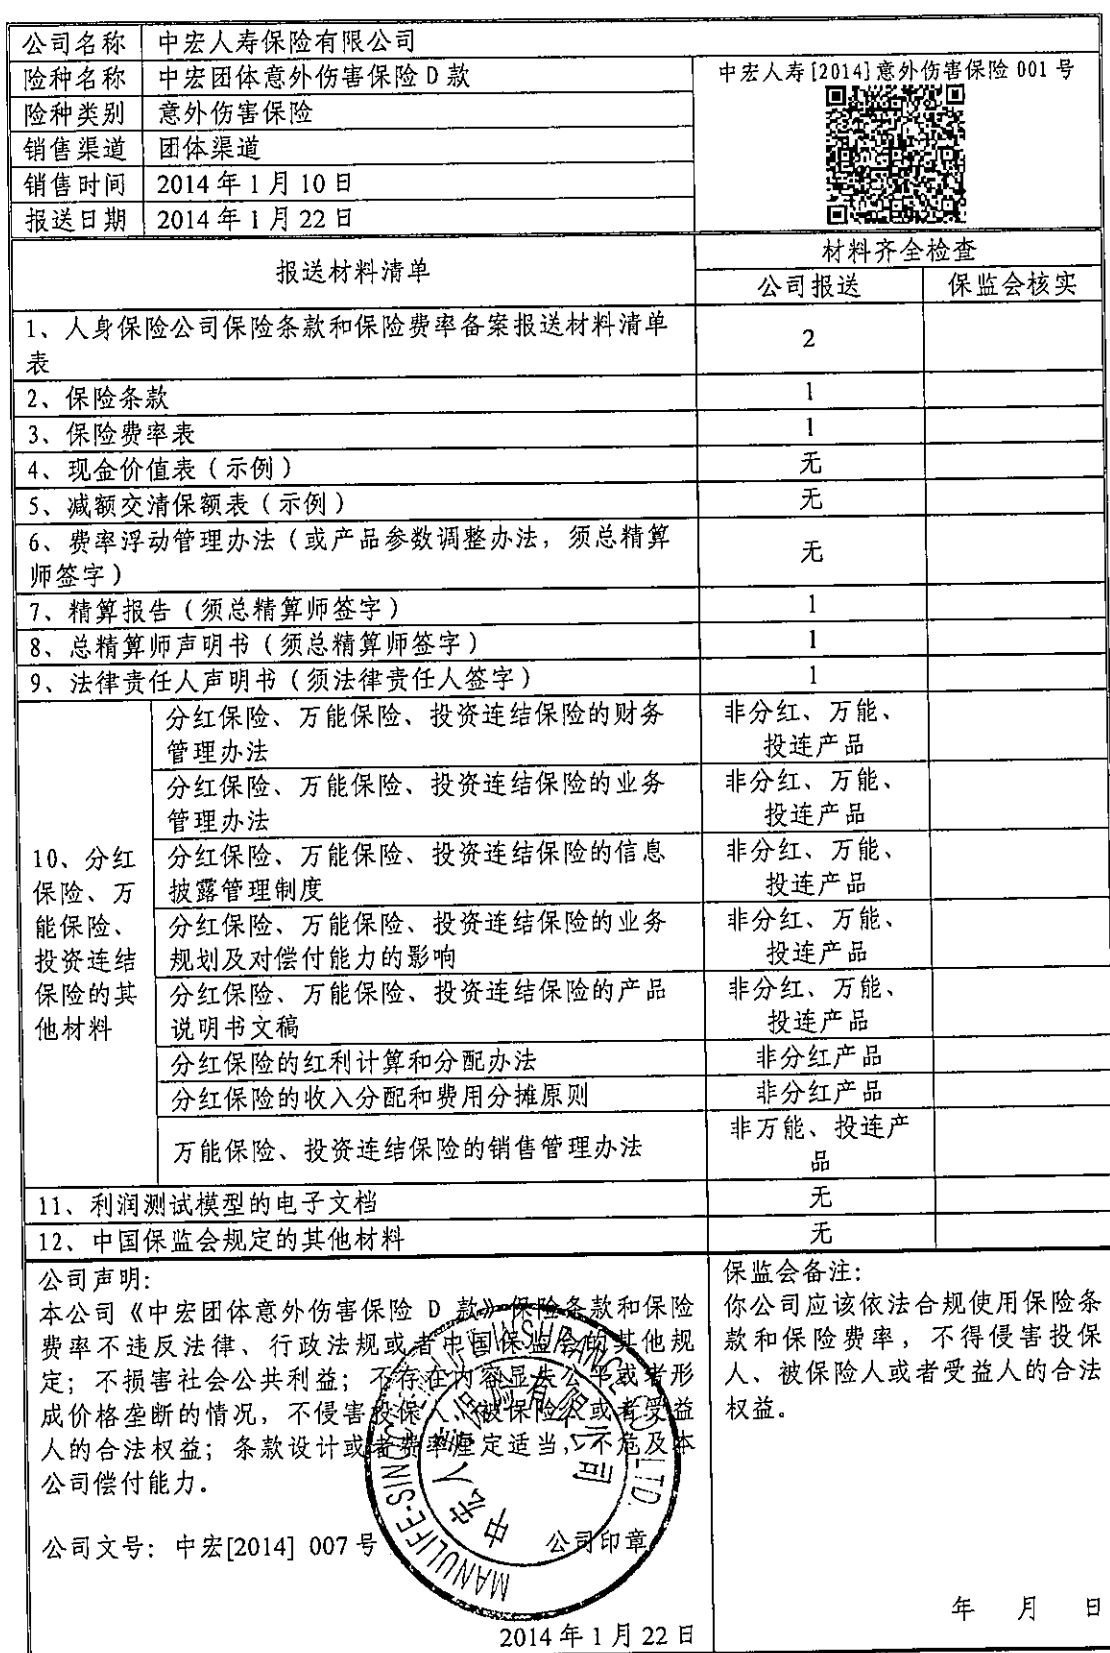 公司名称 中宏人寿保险有限公司
险种名称 中宏团体意外伤害保险 D 款
中宏人寿[2014]意外伤害保险 001 号
险种类别 意外伤害保险
销售渠道 团体渠道
销售时间 2014 年 1 月 10 日
报送日期 2014 年 1 月 22 日
报送材料清单 材料齐全检查
公司报送 保监会核实
1、人身保险公司保险条款和保险费率备案报送材料清单
表
2
2、保险条款 1
3、保险费率表 1
4、现金价值表(示例) 无
5、减额交清保额表(示例) 无
6、费率浮动管理办法(或产品参数调整办法,须总精算
师签字)
无
7、精算报告(须总精算师签字) 1
8、总精算师声明书(须总精算师签字) 1
9、法律责任人声明书(须法律责任人签字) 1
10、分红
保险、万
能保险、
投资连结
保险的其
他材料
分红保险、万能保险、投资连结保险的财务
管理办法
非分红、万能、
投连产品
分红保险、万能保险、投资连结保险的业务
管理办法
非分红、万能、
投连产品
分红保险、万能保险、投资连结保险的信息
披露管理制度
非分红、万能、
投连产品
分红保险、万能保险、投资连结保险的业务
规划及对偿付能力的影响
非分红、万能、
投连产品
分红保险、万能保险、投资连结保险的产品
说明书文稿
非分红、万能、
投连产品
分红保险的红利计算和分配办法 非分红产品
分红保险的收入分配和费用分摊原则 非分红产品
万能保险、投资连结保险的销售管理办法
非万能、投连产
品
11、利润测试模型的电子文档 无
12、中国保监会规定的其他材料 无
公司声明:
本公司《中宏团体意外伤害保险 D 款》保险条款和保险
费率不违反法律、行政法规或者中国保监会的其他规
定;不损害社会公共利益;不存在内容显失公平或者形
成价格垄断的情况,不侵害投保人、被保险人或者受益
人的合法权益;条款设计或者费率厘定适当,不危及本
公司偿付能力。
公司文号:中宏[2014] 007 号 公司印章
2014 年 1 月 22 日
MANULIFE-SINOCHEM LIFE INSURANCE CO. LTD.
中宏人寿保险有限公司
保监会备注:
你公司应该依法合规使用保险条
款和保险费率,不得侵害投保
人、被保险人或者受益人的合法
权益。
年 月 日